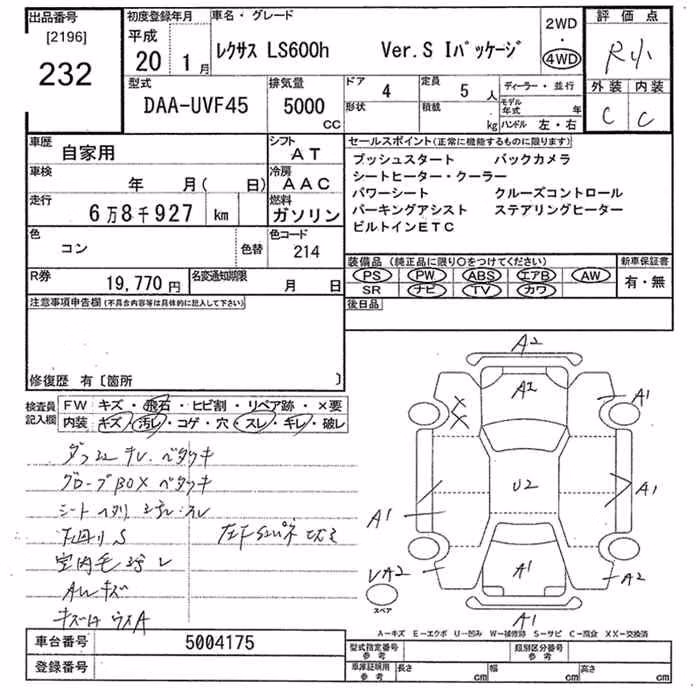 出品番号
[2196]
232
初度登録年月
平成
20 1月
車名・グレード
レクサス LS600h Ver.S Iパッケージ
2WD
・
4WD
評価点
R
外装 内装
C C
型式
DAA-UVF45
排気量
5000
CC
ドア 4
形状
定員 5 人
積載 kg
ディーラー・並行
モデル年式 年
ハンドル 左・右
車歴
自家用
シフト
AT
車検
年 月( 日)
冷房
AAC
走行
6万8千927 km
燃料
ガソリン
色
コン
色替
色コード
214
R券
19,770円
名変通知期限
月 日
セールスポイント(正常に機能するものに限ります)
プッシュスタート バックカメラ
シートヒーター・クーラー
パワーシート クルーズコントロール
パーキングアシスト ステアリングヒーター
ビルトインETC
装備品(純正品に限り〇をつけてください)
新車保証書
PS PW ABS エアB AW
有・無
SR ナビ TV カワ
後日品
注意事項申告欄(不具合内容等は具体的に記入して下さい)
修復歴 有〔箇所 〕
検査員
記入欄
FW キズ・飛石・ヒビ割・リペア跡・×要
内装 キズ・汚レ・コゲ・穴・スレ・キレ・破レ
グローブBOX ベタツキ
下回り S
AWキズ
A2
A2
A1
U2
A1
A1
A1
A2
A2
A1
スペア
A-キズ E-エクボ U-凹み W-補修跡 S-サビ C-腐食 XX-交換済
車台番号
5004175
登録番号
型式指定番号
参考
類別区分番号
参考
車庫証明用
参考
長さ cm
幅 cm
高さ cm